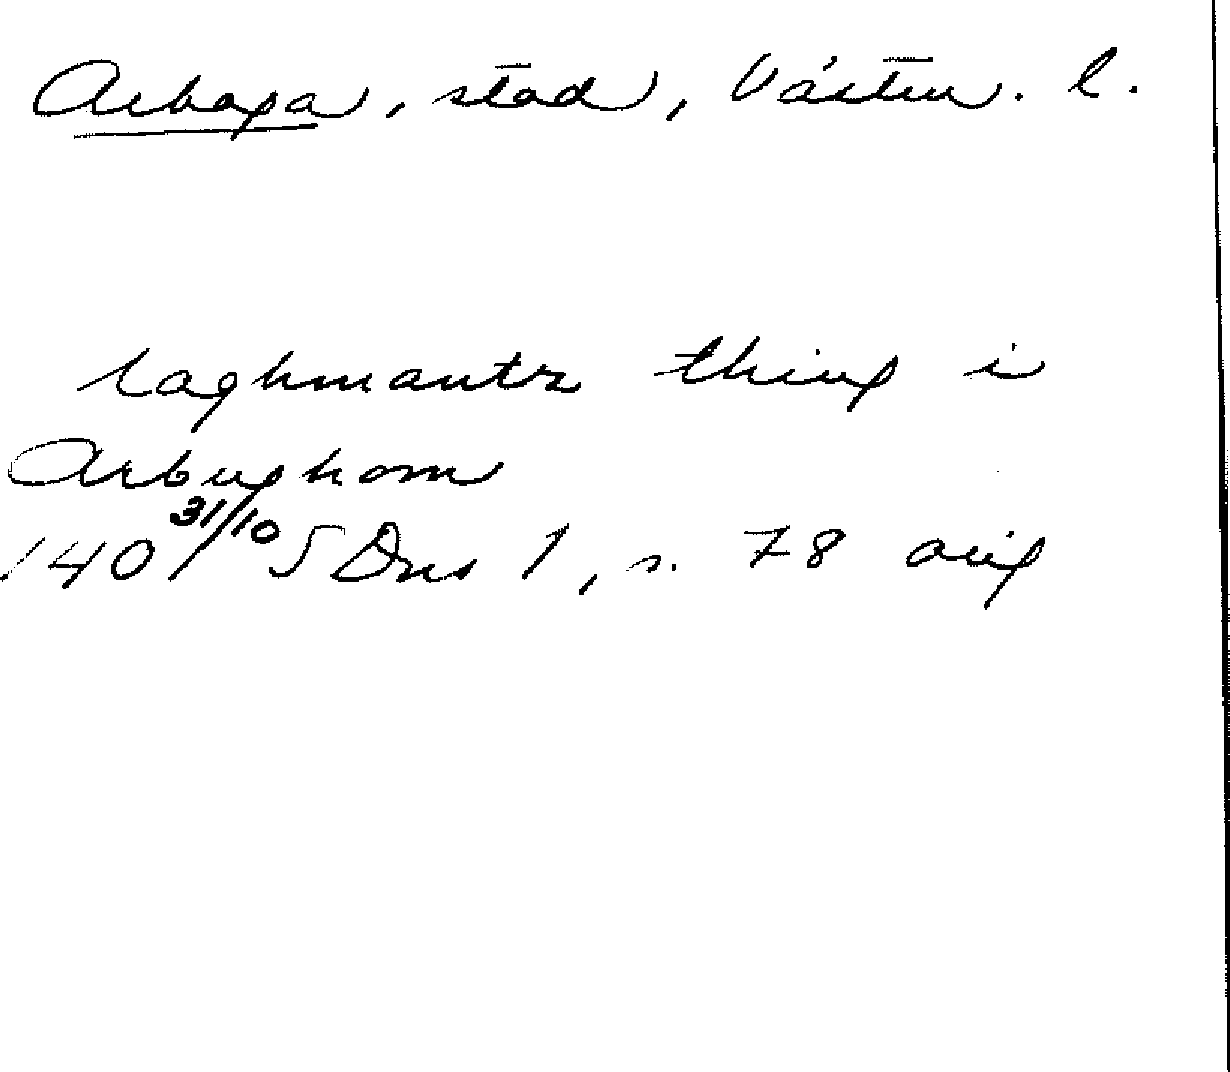 Arboga, stad, Västm. l.
laghmantz thing i
Arbughom
140 31/10 5 Dns 1, s. 78 orig